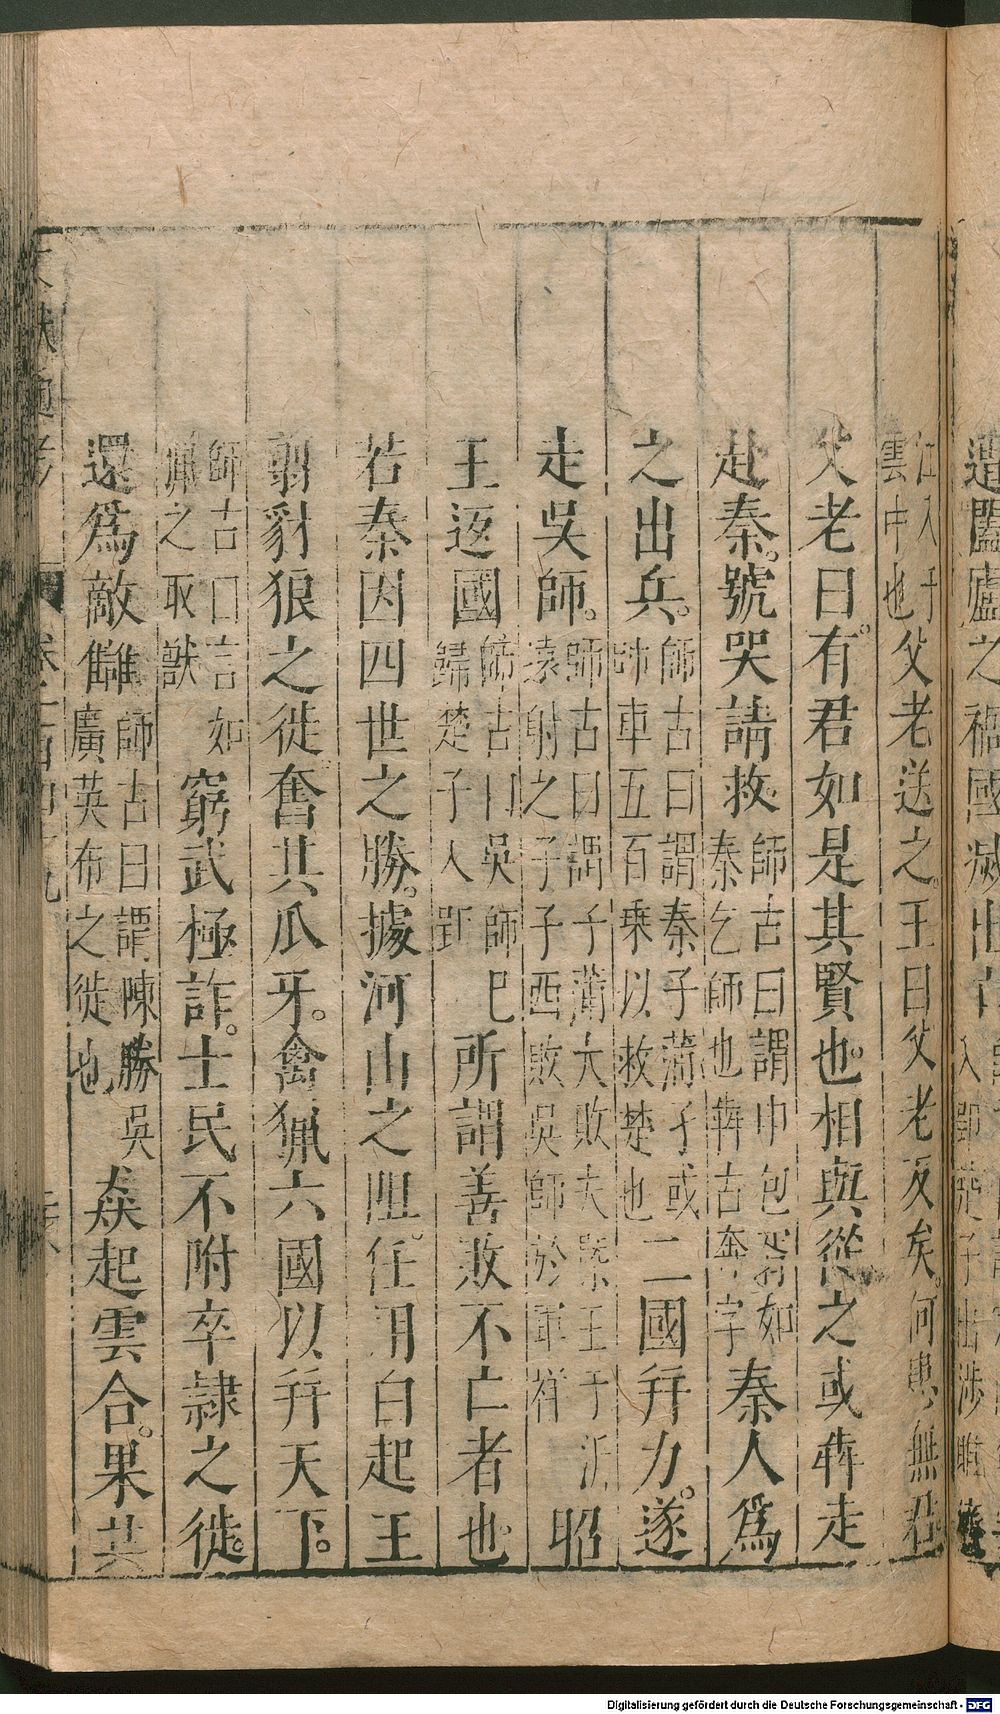 江入于雲中也父老送之王曰父老反矣何患無君
父老曰有君如是其賢也相與從之或犇走
赴秦號哭請救師古曰謂申包胥如秦乞師也犇古奔字秦人爲
之出兵師古曰謂秦子蒲子或帥車五百乗以救楚也二國幷力遂
走吳師師古曰謂子蒲大敗夫槩王于沂遠射之子子西敗吳師於軍祥昭
王返國師古曰吳師已歸楚子入郢所謂善敗不亡者也
若秦因四世之勝據河山之阻任用白起王
翦豺狼之徒奮其爪牙禽獵六國以幷天下
師古曰言如獵之取獸窮武極詐士民不附卒隷之徒
還爲敵讎師古曰謂陳勝吳廣英布之徒也猋起雲合果共
Digitalisierung gefördert durch die Deutsche Forschungsgemeinschaft - DFG